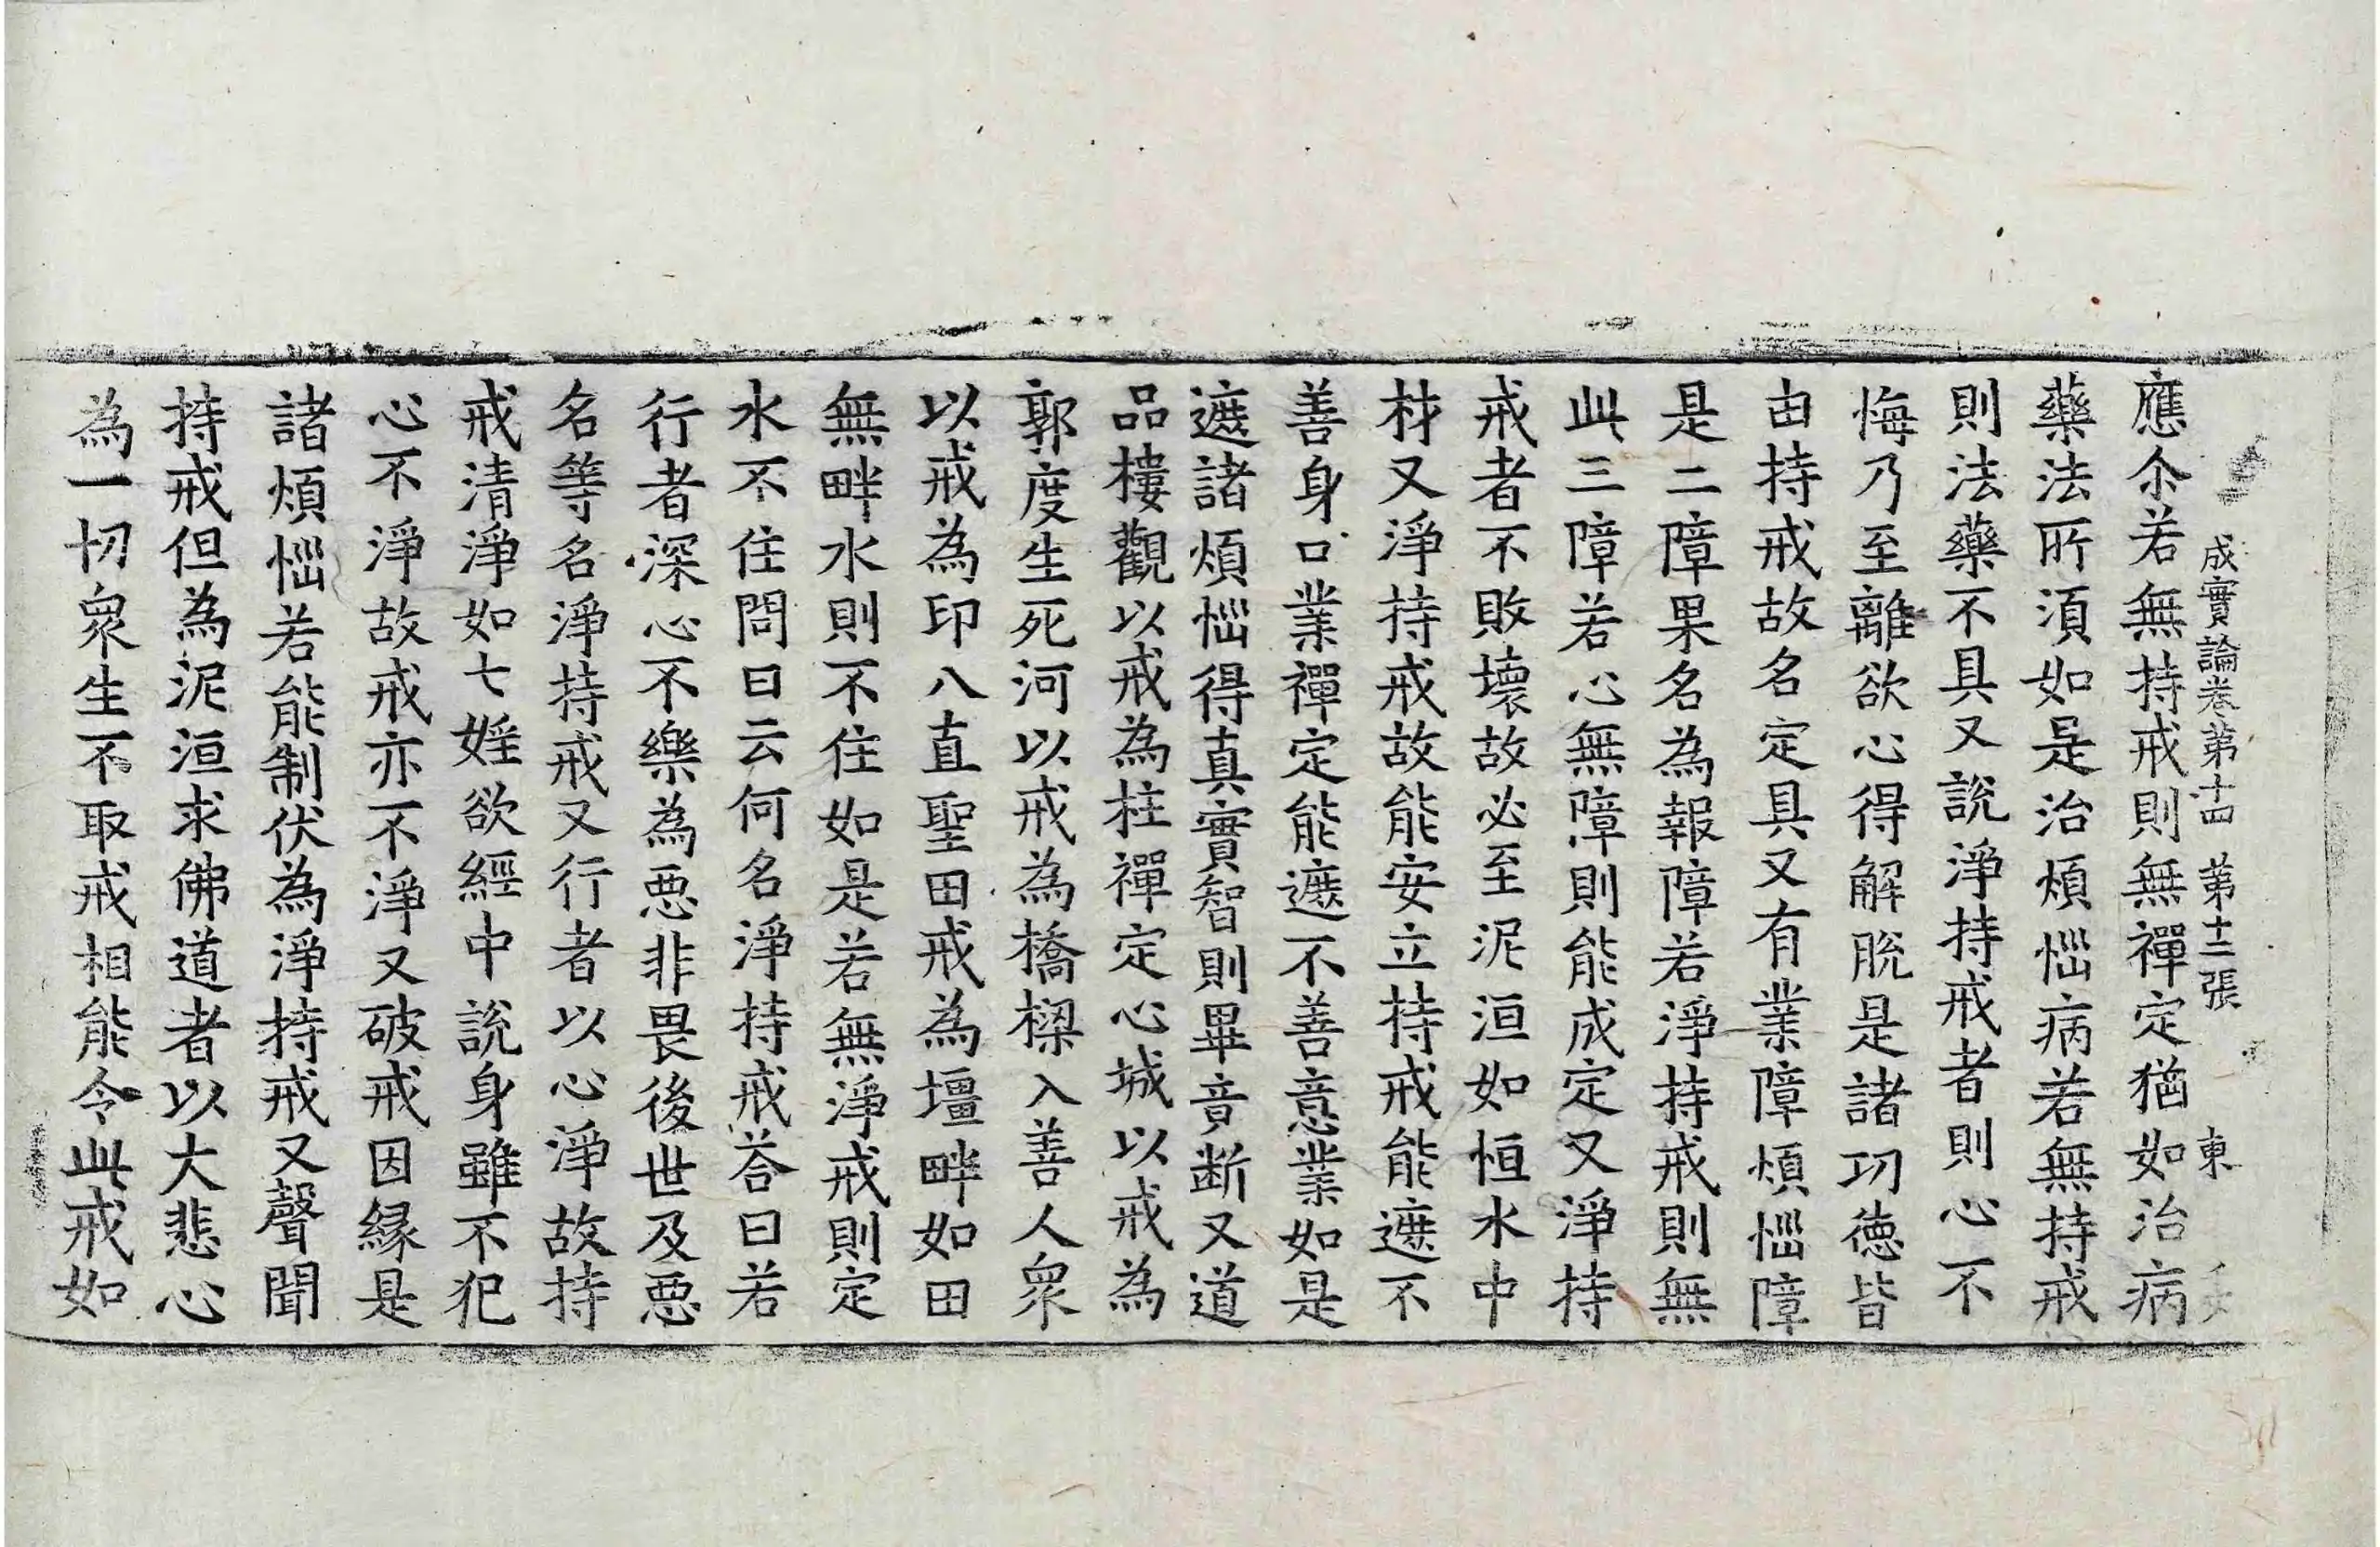 成實論卷第十四 第十二張 東
應尒若無持戒則無禪定猶如治病
藥法所湏如是治煩惱病若無持戒
則法藥不具又說淨持戒者則心不
悔乃至離欲心得解脫是諸功德皆
由持戒故名定具又有業障煩惱障
是二障果名為報障若淨持戒則無
此三障若心無障則能成定又淨持
戒者不敗壞故必至泥洹如恒水中
材又淨持戒故能安立持戒能遮不
善身口業禪定能遮不善意業如是
遮諸煩惱得真實智則畢竟断又道
品樓觀以戒為柱禪定心城以戒為
郭度生死河以戒為橋樑入善人衆
以戒為印八直聖田戒為壃畔如田
無畔水則不住如是若無淨戒則定
水不住問曰云何名淨持戒荅曰若
行者深心不樂為惡非畏後世及惡
名等名淨持戒又行者以心淨故持
戒清淨如七婬欲經中說身雖不犯
心不淨故戒亦不淨又破戒因緣是
諸煩惱若能制伏為淨持戒又聲聞
持戒但為泥洹求佛道者以大悲心
為一切衆生不取戒相能令此戒如